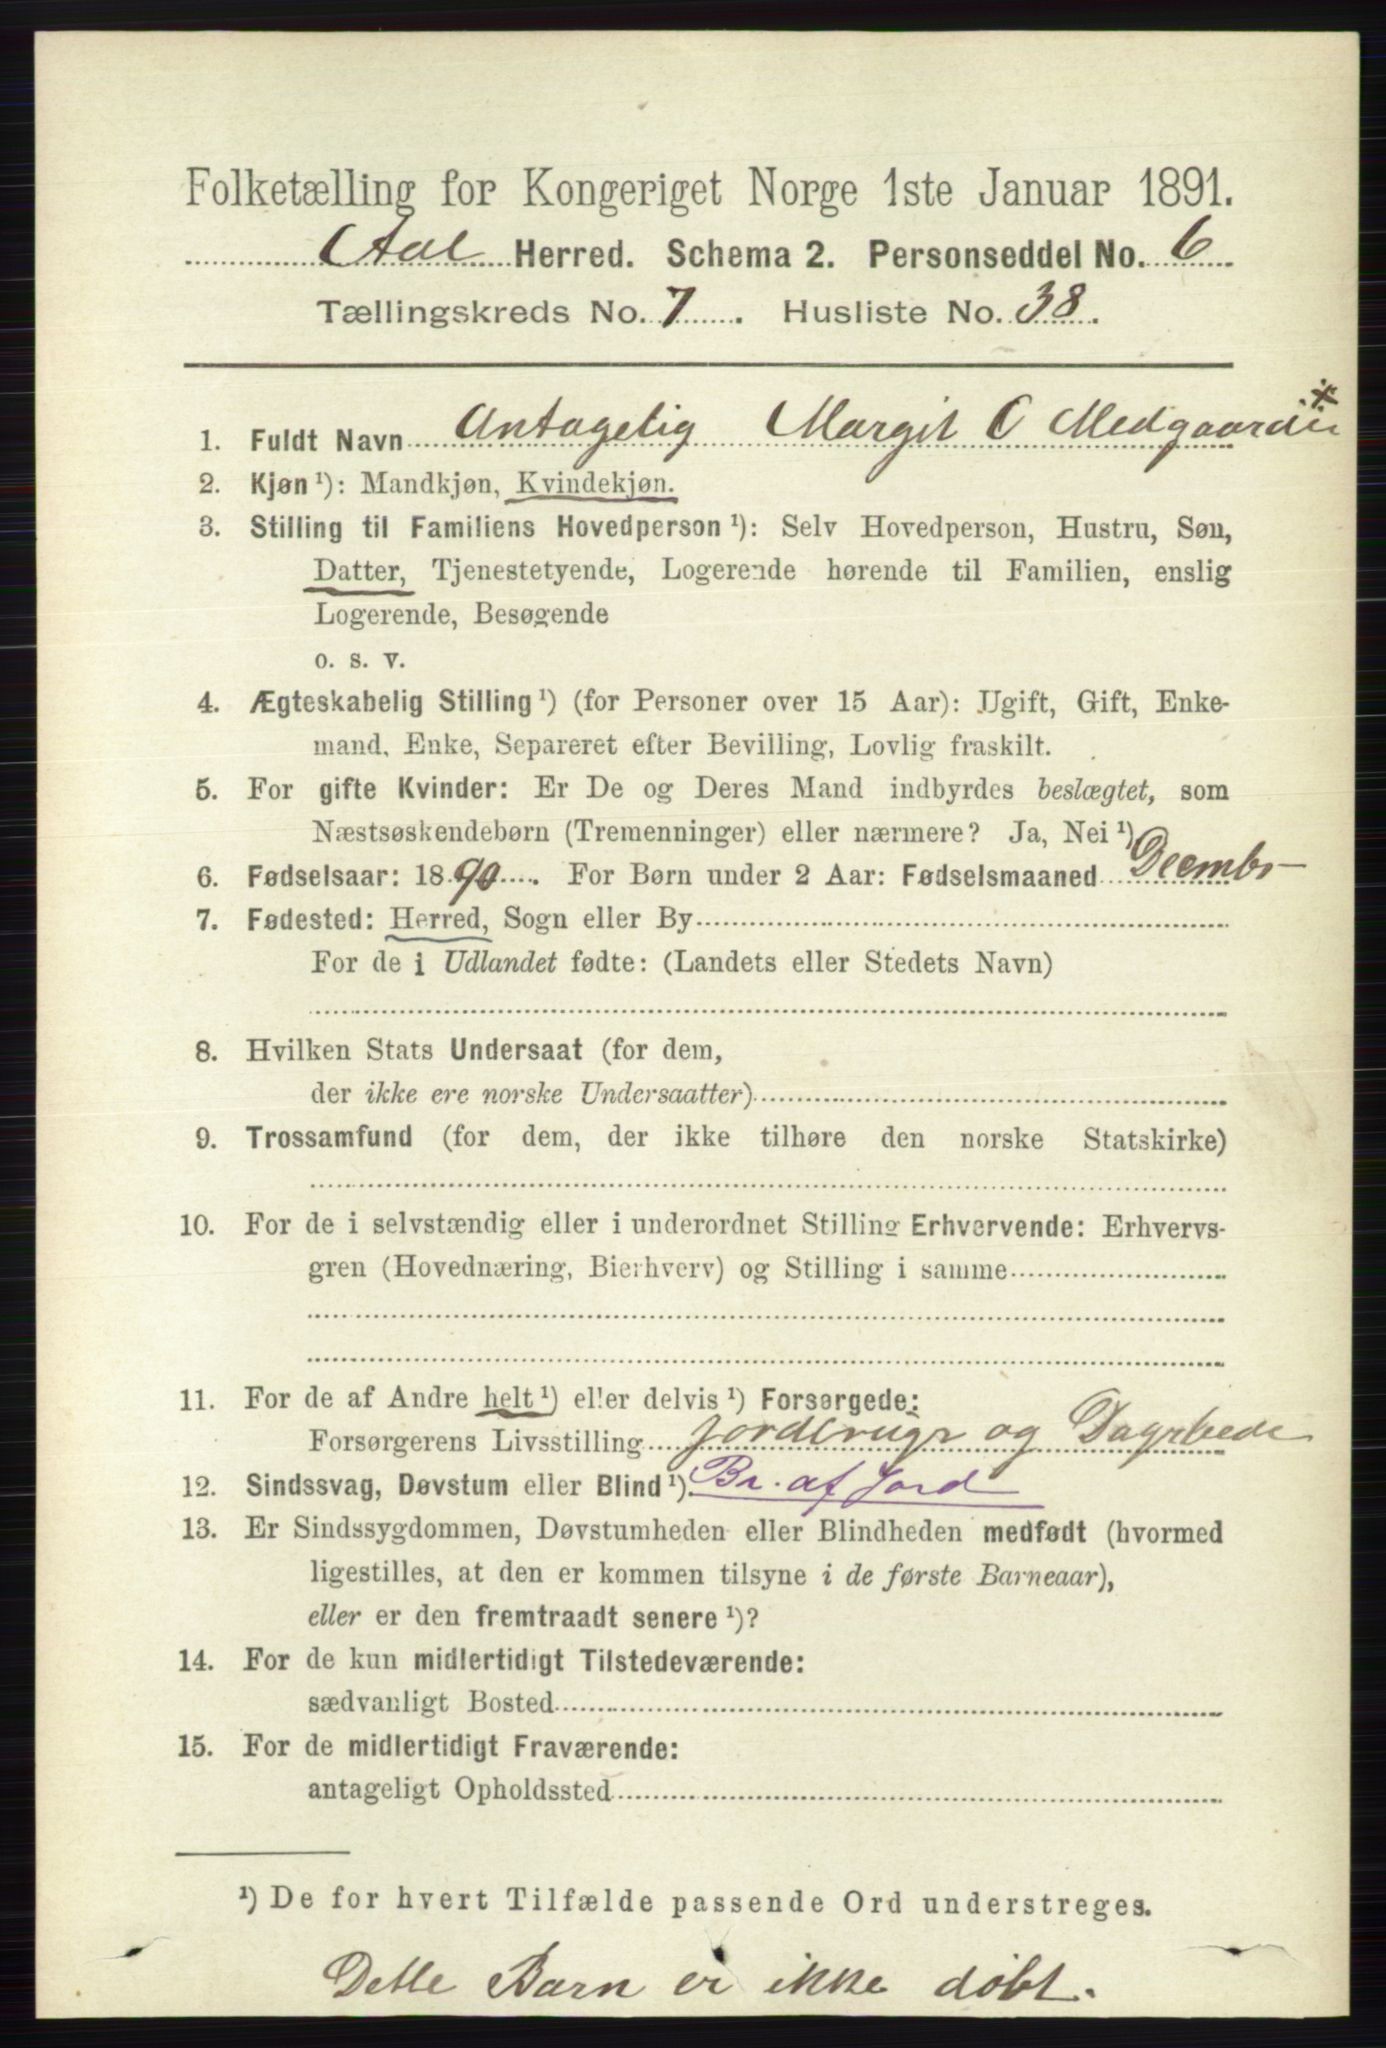 Folketælling for Kongeriget Norge 1ste Januar 1891.
Aal Herred. Schema 2. Personseddel No. 6
Tællingskreds No. 7. Husliste No. 38.
1. Fuldt Navn Antagelig Margit O Medgaarden *
2. Kjøn ¹): Mandkjøn, Kvindekjøn.
3. Stilling til Familiens Hovedperson ¹): Selv Hovedperson, Hustru, Søn,
Datter, Tjenestetyende, Logerende hørende til Familien, enslig
Logerende, Besøgende
o. s. v.
4. Ægteskabelig Stilling ¹) (for Personer over 15 Aar): Ugift, Gift, Enke-
mand, Enke, Separeret efter Bevilling, Lovlig fraskilt.
5. For gifte Kvinder: Er De og Deres Mand indbyrdes beslægtet, som
Næstsøskendebørn (Tremenninger) eller nærmere? Ja, Nei ¹)
6. Fødselsaar: 1890. For Børn under 2 Aar: Fødselsmaaned
7. Fødested: Herred, Sogn eller By
For de i Udlandet fødte: (Landets eller Stedets Navn)
8. Hvilken Stats Undersaat (for dem,
der ikke ere norske Undersaatter)
9. Trossamfund (for dem, der ikke tilhøre den norske Statskirke)
10. For de i selvstændig eller i underordnet Stilling Erhvervende: Erhvervs-
gren (Hovednæring, Bierhverv) og Stilling i samme
11. For de af Andre helt ¹) eller delvis ¹) Forsørgede:
Forsørgerens Livsstilling og
12. Sindssvag, Døvstum eller Blind ¹). Br. af Jord
13. Er Sindssygdommen, Døvstumheden eller Blindheden medfødt (hvormed
ligestilles, at den er kommen tilsyne i de første Barneaar),
eller er den fremtraadt senere ¹)?
14. For de kun midlertidigt Tilstedeværende:
sædvanligt Bosted
15. For de midlertidigt Fraværende:
antageligt Opholdssted
¹) De for hvert Tilfælde passende Ord understreges.
Dette Barn er ikke døbt.